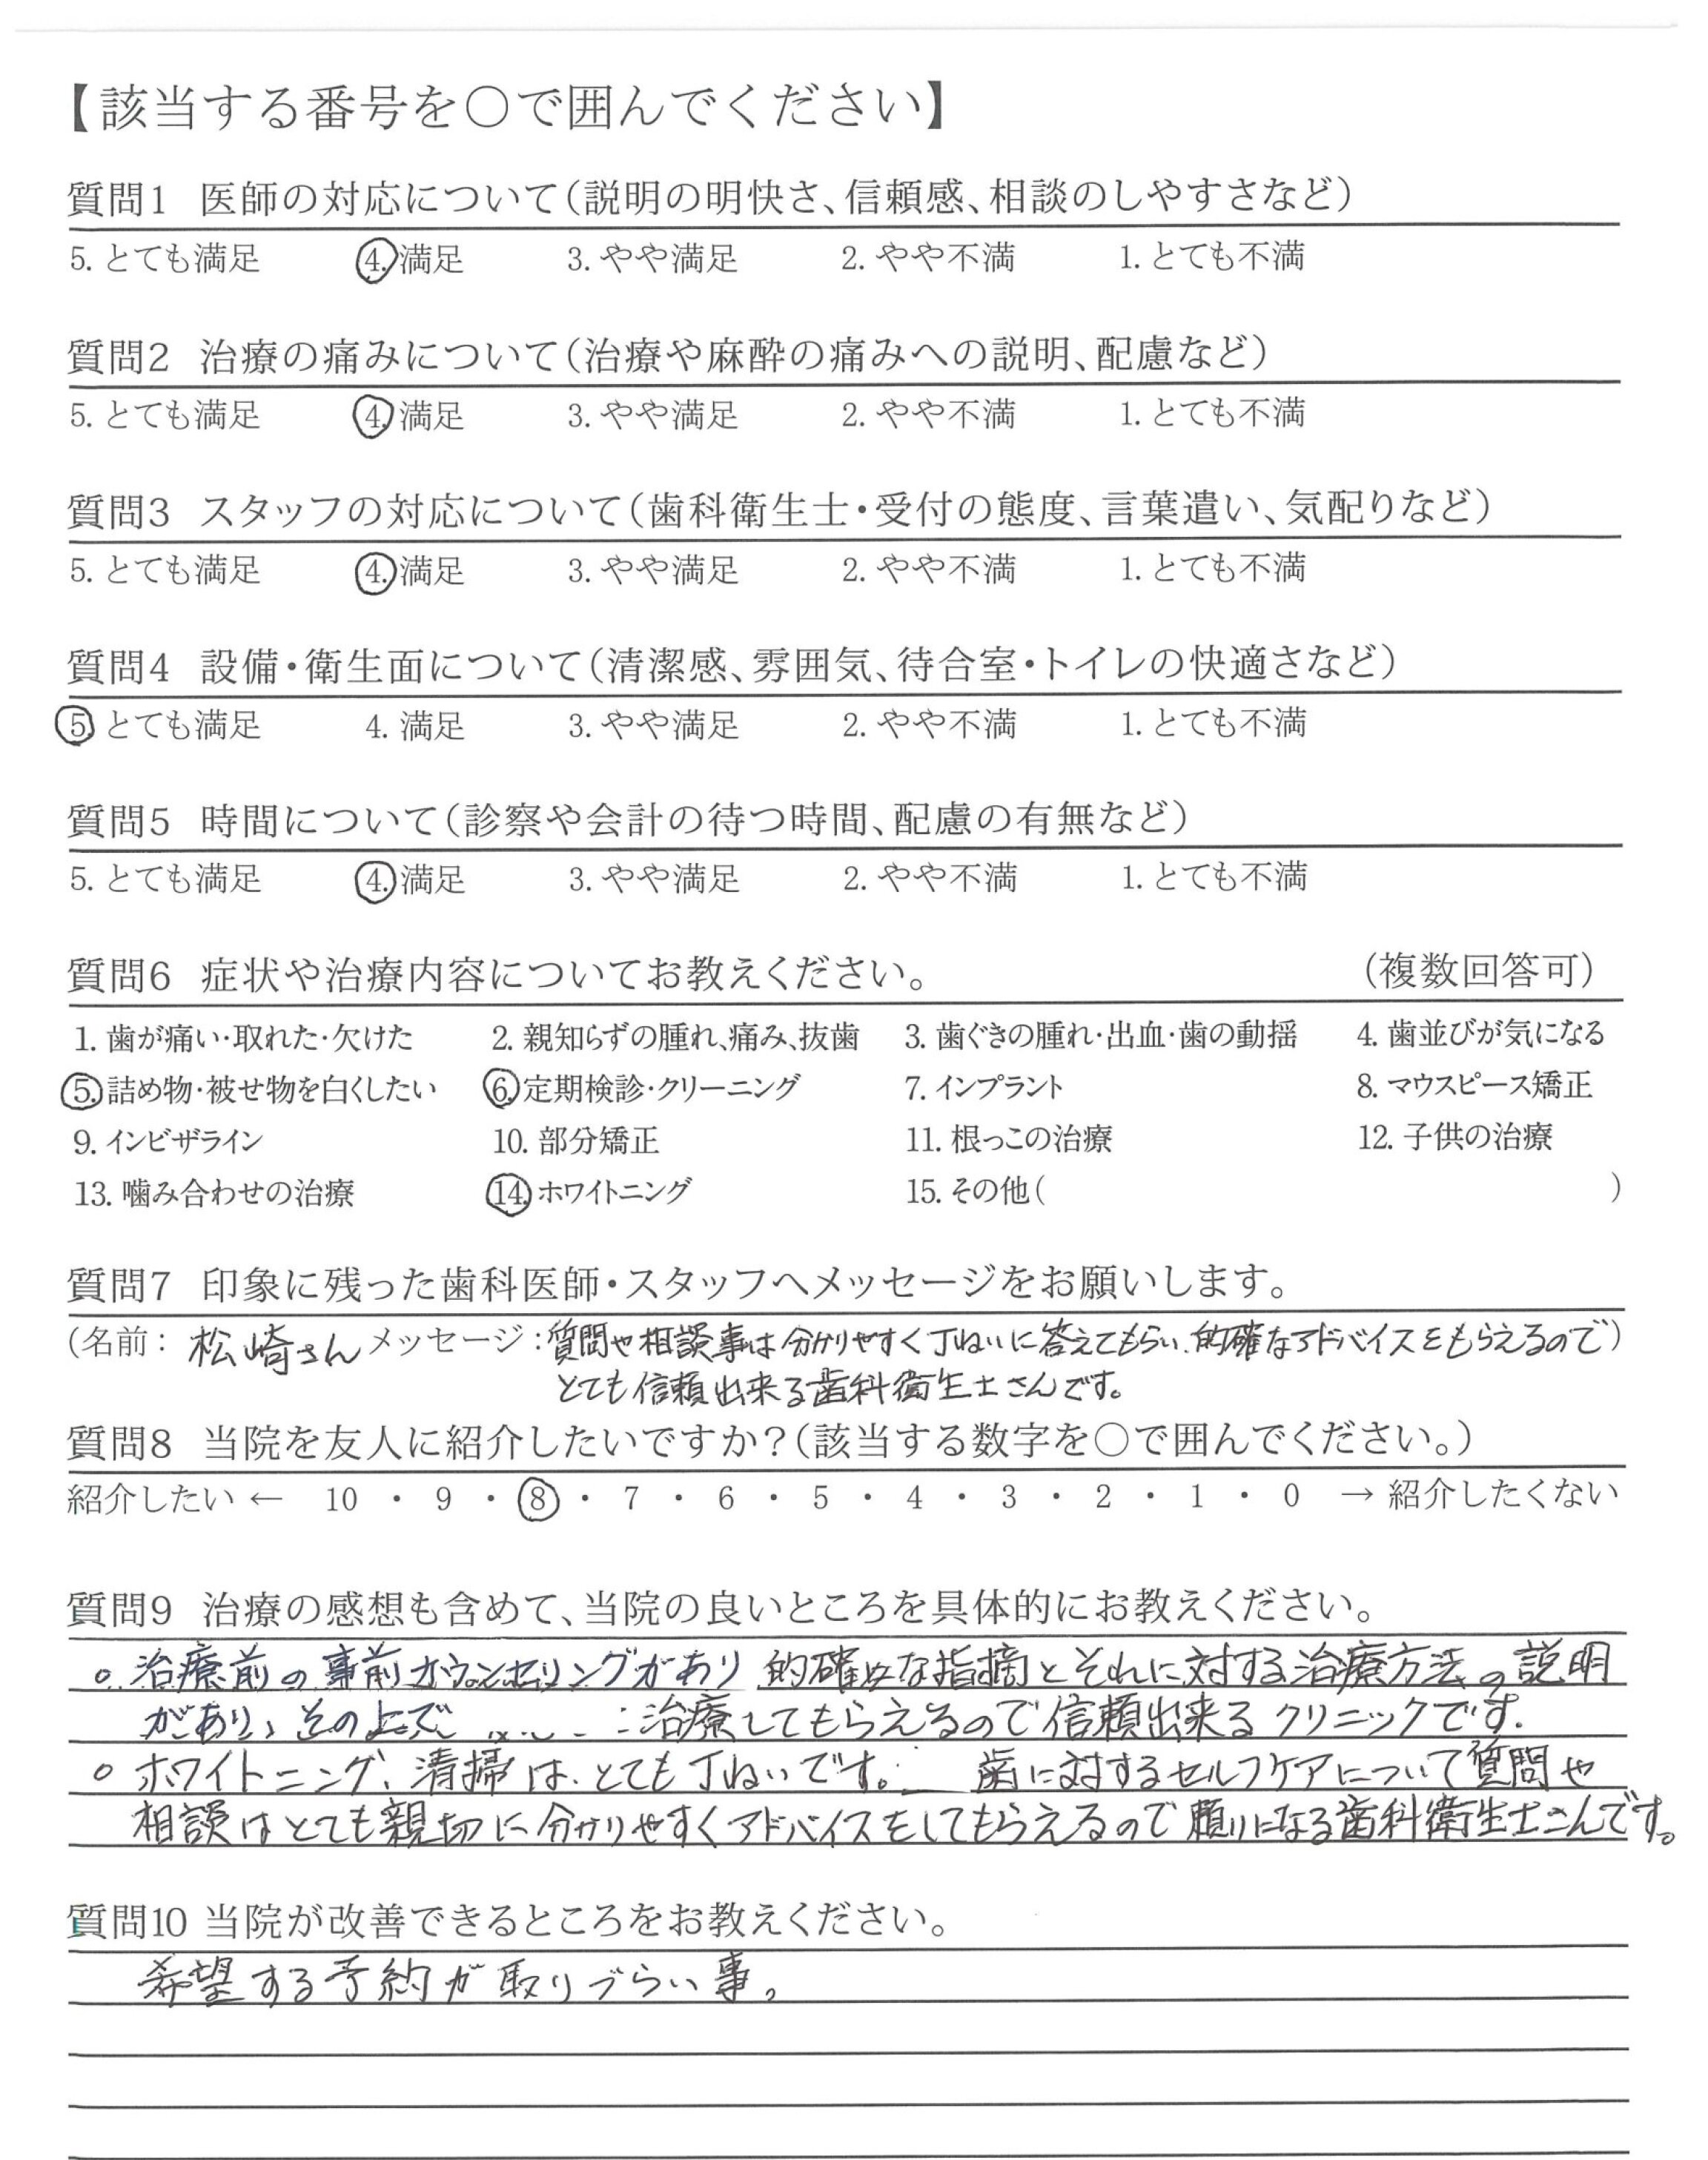 【該当する番号を○で囲んでください】
質問1 医師の対応について(説明の明快さ、信頼感、相談のしやすさなど)
5. とても満足 4. 満足 3. やや満足 2. やや不満 1. とても不満
質問2 治療の痛みについて(治療や麻酔の痛みへの説明、配慮など)
5. とても満足 4. 満足 3. やや満足 2. やや不満 1. とても不満
質問3 スタッフの対応について(歯科衛生士・受付の態度、言葉遣い、気配りなど)
5. とても満足 4. 満足 3. やや満足 2. やや不満 1. とても不満
質問4 設備・衛生面について(清潔感、雰囲気、待合室・トイレの快適さなど)
5 とても満足 4. 満足 3. やや満足 2. やや不満 1. とても不満
質問5 時間について(診察や会計の待つ時間、配慮の有無など)
5. とても満足 4. 満足 3. やや満足 2. やや不満 1. とても不満
質問6 症状や治療内容についてお教えください。 (複数回答可)
1. 歯が痛い・取れた・欠けた 2. 親知らずの腫れ、痛み、抜歯 3. 歯ぐきの腫れ・出血・歯の動揺 4. 歯並びが気になる
5. 詰め物・被せ物を白くしたい 6. 定期検診・クリーニング 7. インプラント 8. マウスピース矯正
9. インビザライン 10. 部分矯正 11. 根っこの治療 12. 子供の治療
13. 噛み合わせの治療 14. ホワイトニング 15. その他( )
質問7 印象に残った歯科医師・スタッフへメッセージをお願いします。
(名前: 松崎さん メッセージ:質問や相談事は分かりやすく丁ねいに答えてもらい、的確なアドバイスをもらえるので)
とても信頼出来る歯科衛生士さんです。
質問8 当院を友人に紹介したいですか?(該当する数字を○で囲んでください。)
紹介したい ← 10 ・ 9 ・ 8 ・ 7 ・ 6 ・ 5 ・ 4 ・ 3 ・ 2 ・ 1 ・ 0 → 紹介したくない
質問9 治療の感想も含めて、当院の良いところを具体的にお教えください。
○ 治療前の事前カウンセリングがあり 的確な指摘とそれに対する治療方法の説明
があり、その上で 治療してもらえるので信頼出来るクリニックです。
○ ホワイトニング、清掃は、とても丁ねいです。 歯に対するセルフケアについて質問や
相談はとても親切に分かりやすくアドバイスをしてもらえるので頼りになる歯科衛生士さんです。
質問10 当院が改善できるところをお教えください。
希望する予約が取りづらい事。